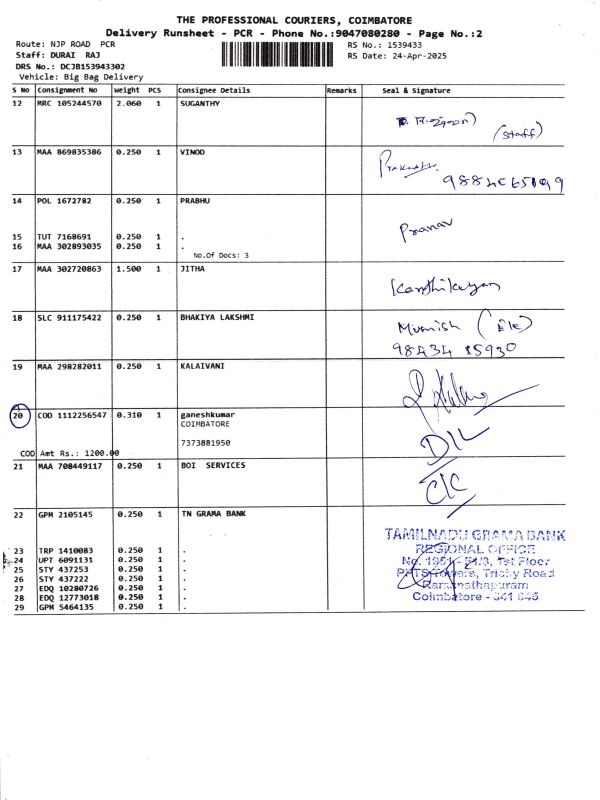 THE PROFESSIONAL COURIERS, COIMBATORE
Delivery Runsheet - PCR - Phone No.:9047080280 - Page No.:2
Route: NJP ROAD PCR
RS No.: 1539433
Staff: DURAI RAJ
RS Date: 24-Apr-2025
DRS No.: DCJB153943302
Vehicle: Big Bag Delivery
S No Consignment No Weight PCS Consignee Details Remarks Seal & Signature
12 MRC 105244570 2.060 1 SUGANTHY
(Staff)
13 MAA 869835386 0.250 1 VINOD
Prakash
14 POL 1672782 0.250 1 PRABHU
Pranav
15 TUT 7168691 0.250 1 .
16 MAA 302893035 0.250 1 .
No.Of Docs: 3
17 MAA 302720863 1.500 1 JITHA
Karthikeyan
18 SLC 911175422 0.250 1 BHAKIYA LAKSHMI
Munish
98434 85930
19 MAA 298282011 0.250 1 KALAIVANI
20 COD 1112256547 0.310 1 ganeshkumar
COIMBATORE
7373881950
D/L
COD Amt Rs.: 1200.00
21 MAA 708449117 0.250 1 BOI SERVICES
C/C
22 GPM 2105145 0.250 1 TN GRAMA BANK
TAMILNADU GRAMA BANK
REGIONAL OFFICE
23 TRP 1410083 0.250 1 .
24 UPT 6091131 0.250 1 .
No. 1951 - F1/3, 1st Floor
25 STY 437253 0.250 1 .
Towers, Trichy Road
26 STY 437222 0.250 1 .
Ramanathapuram
27 EDQ 10280726 0.250 1 .
28 EDQ 12773018 0.250 1 .
Coimbatore - 641 045
29 GPM 5464135 0.250 1 .